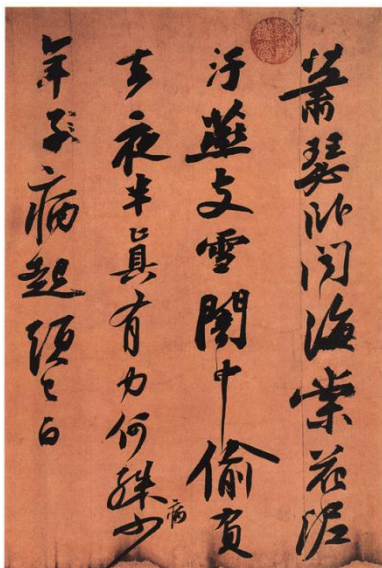 蕭瑟臥聞海棠花泥
汙燕支雪闇中偷負
去夜半真有力何殊少
年子病起頭已白
病